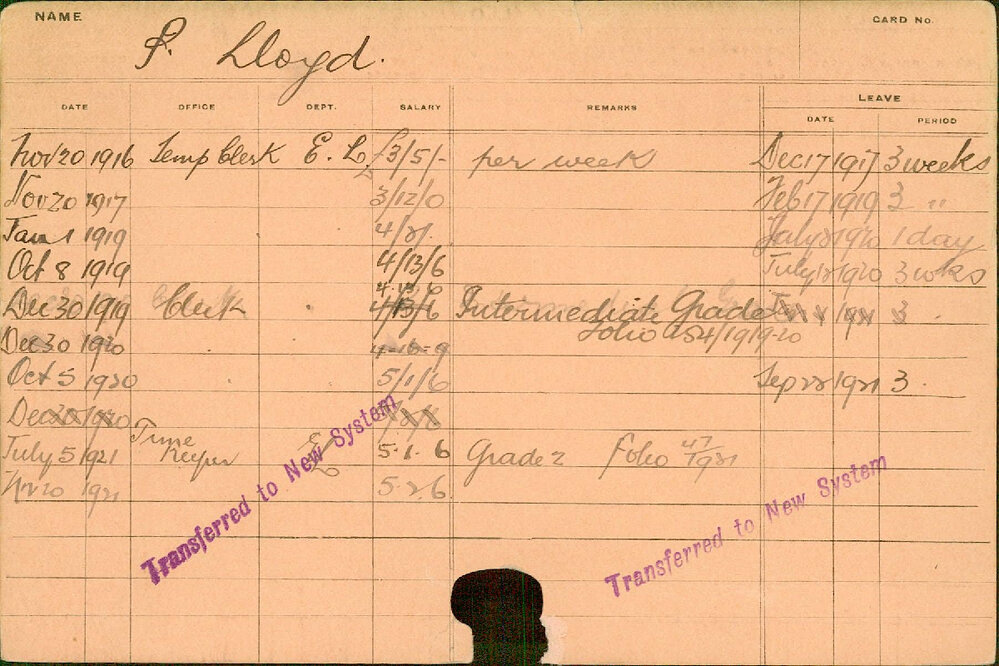 NAME
CARD No.
P. Lloyd.
DATE OFFICE DEPT. SALARY REMARKS LEAVE
DATE PERIOD
Nov 20 1916 Temp Clerk E. L. £3/5/- per week Dec 17 1917 3 weeks
Nov 20 1917 3/12/0 Feb 17 1919 3 "
Jan 1 1919 4/2/. July 1920 1 day
Oct 8 1919 4/13/6 July 1920 3 wks
Dec 30 1919 Clerk 4/13/6 Intermediate Grade 1921 3
folio 1919-20
Dec 30 1920
Oct 5 1920 5/1/6 Sep 28 1921 3.
Dec 30 1920
July 5 1921 Time Keeper E L 5.1.6 Grade 2 folio 47/1921
Nov 20 1921 5-2.6
Transferred to New System
Transferred to New System